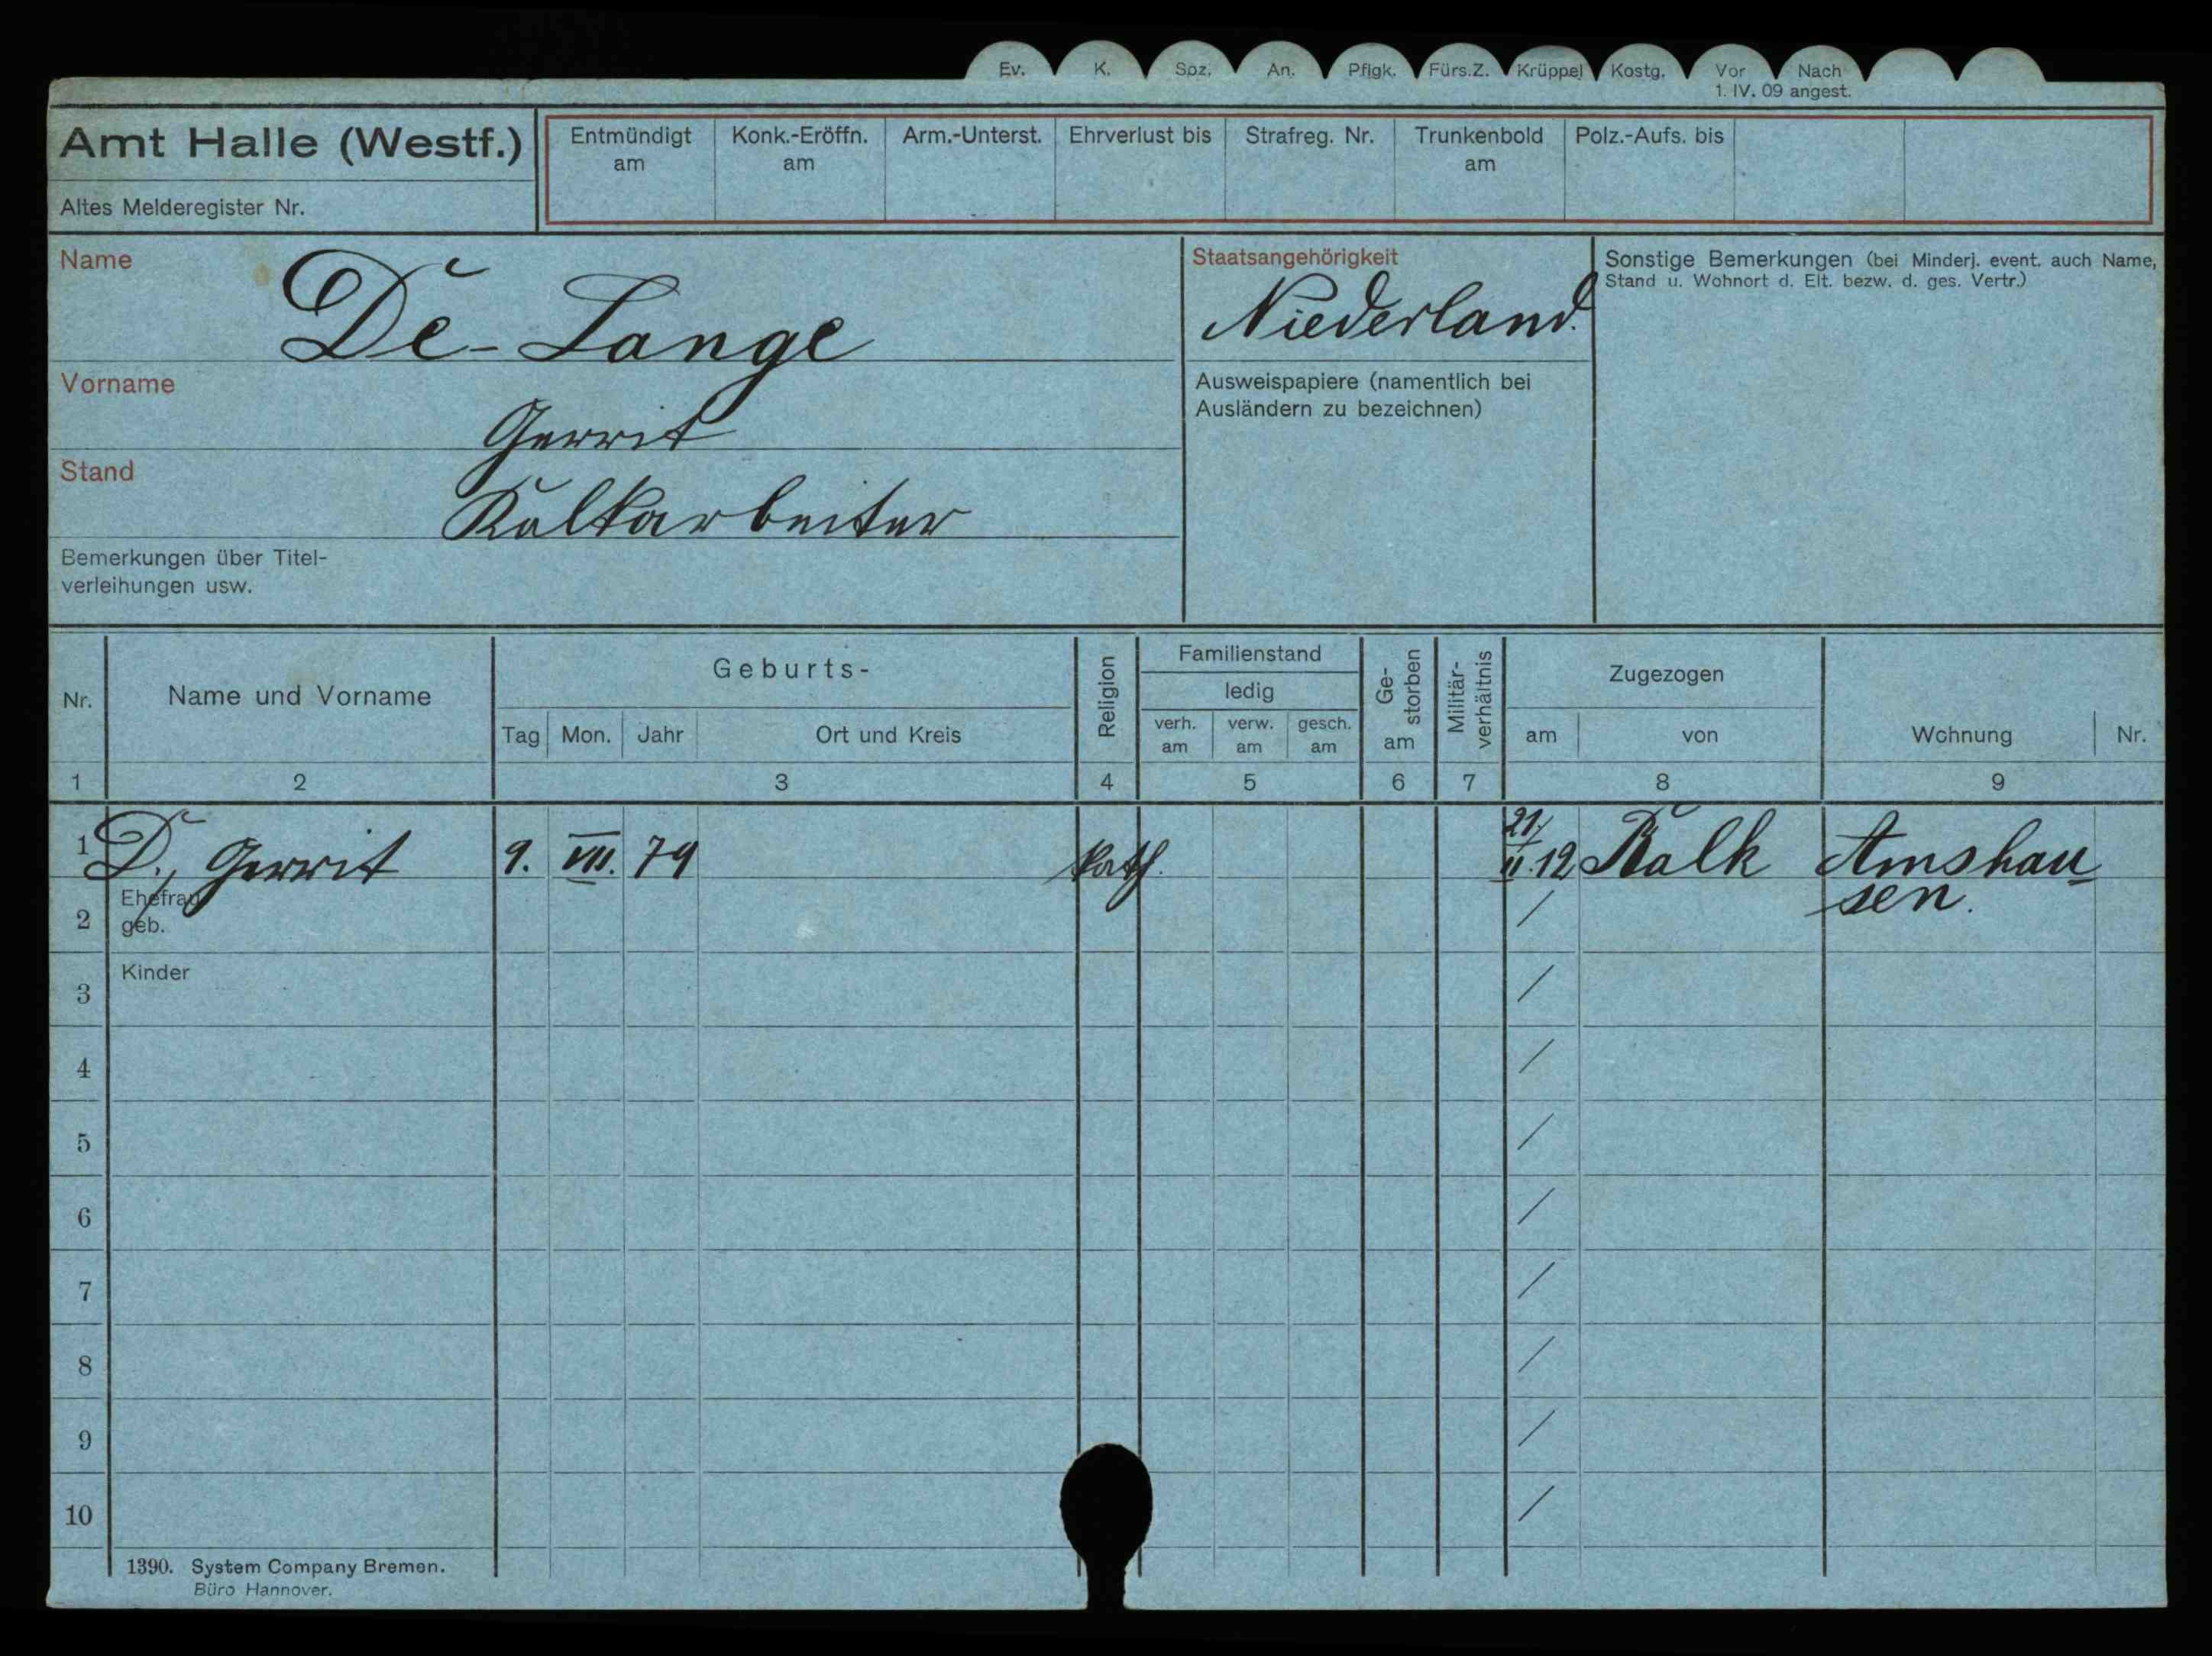 Ev. K. Soz. An. Pflgk. Fürs.Z. Krüppel Kostg. Vor Nach
1. IV. 09 angest.
Amt Halle (Westf.)
Entmündigt am
Konk.-Eröffn. am
Arm.-Unterst.
Ehrverlust bis
Strafreg. Nr.
Trunkenbold am
Polz.-Aufs. bis
Altes Melderegister Nr.
Name
De-Lange
Staatsangehörigkeit
Niederland.
Sonstige Bemerkungen (bei Minderj. event. auch Name,
Stand u. Wohnort d. Elt. bezw. d. ges. Vertr.)
Vorname
Gerrit
Ausweispapiere (namentlich bei
Ausländern zu bezeichnen)
Stand
Kalkarbeiter
Bemerkungen über Titel-
verleihungen usw.
Nr.
Name und Vorname
Geburts-
Tag Mon. Jahr Ort und Kreis
Religion
Familienstand
ledig
verh. am
verw. am
gesch. am
Ge-
storben
am
Militär-
verhältnis
Zugezogen
am von
Wohnung Nr.
1 2 3 4 5 6 7 8 9
1 D., Gerrit 9. VII. 79 kath. 21./II.12 Kalk Amshau-
sen.
2 Ehefrau
geb.
3 Kinder
4
5
6
7
8
9
10
1390. System Company Bremen.
Büro Hannover.